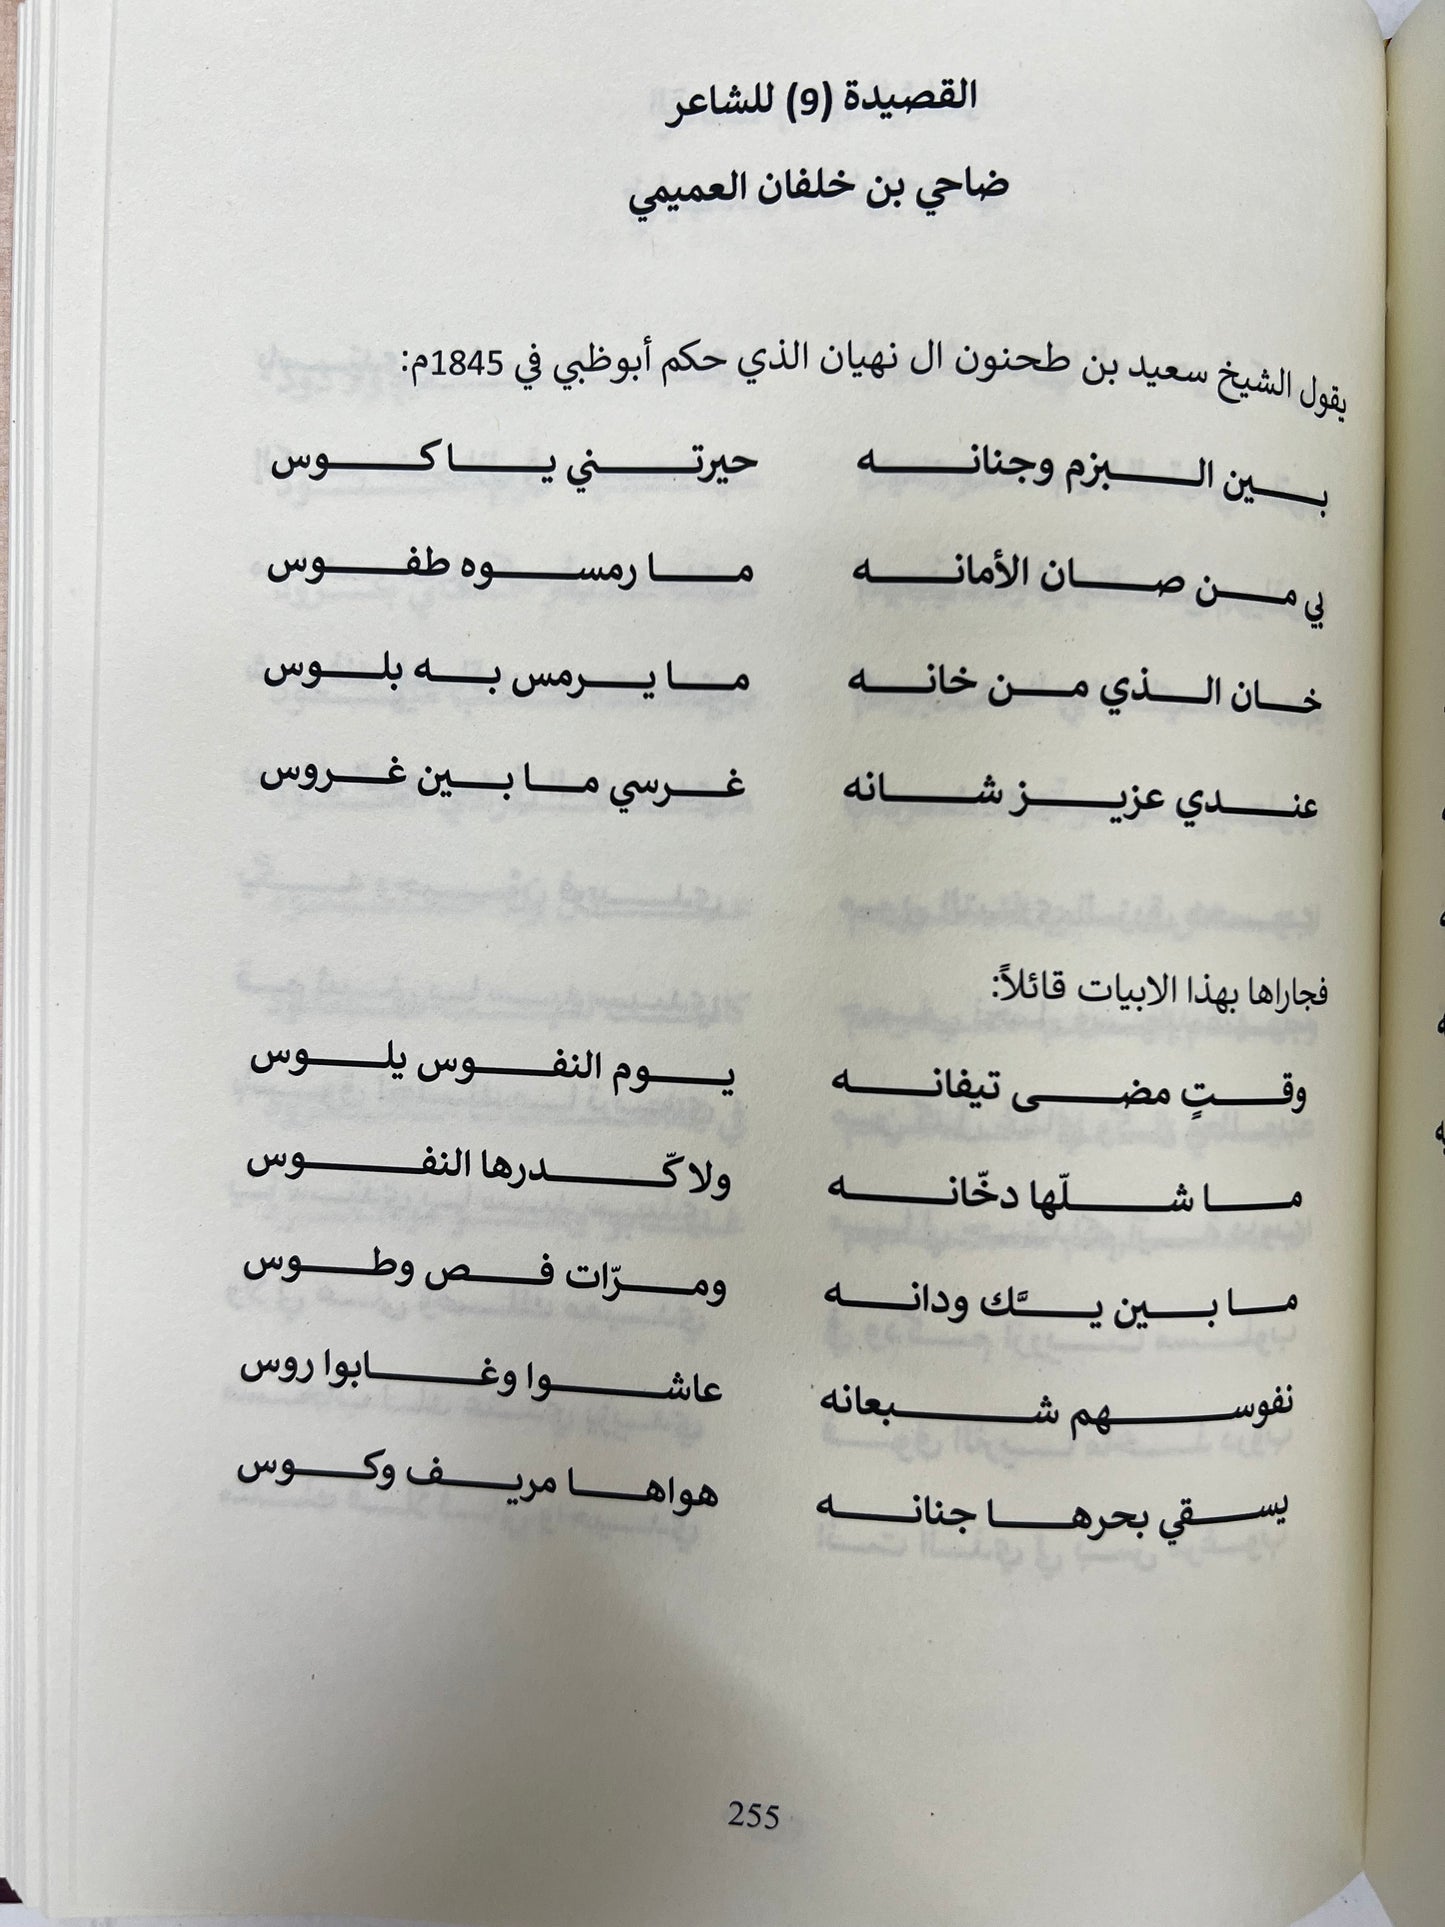 القصيدة (9) للشاعر
ضاحي بن خلفان العميمي
يقول الشيخ سعيد بن طحنون ال نهيان الذي حكم أبوظبي في 1845م:
بين البزم وجنانه حيرتني يا كوس
بي من صان الأمانه ما رمسوه طفوس
خان الذي من خانه ما يرمس به بلوس
عندي عزيز شانه غرسي ما بين غروس
فجاراها بهذا الابيات قائلاً:
وقتٍ مضى تيفانه يوم النفوس يلوس
ما شلّها دخّانه ولا كّدرها النفوس
ما بين يتَّك ودانه ومرّات فص وطوس
نفوسهم شبعانه عاشوا وغابوا روس
يسقي بحرها جنانه هواها مريف وكوس
255